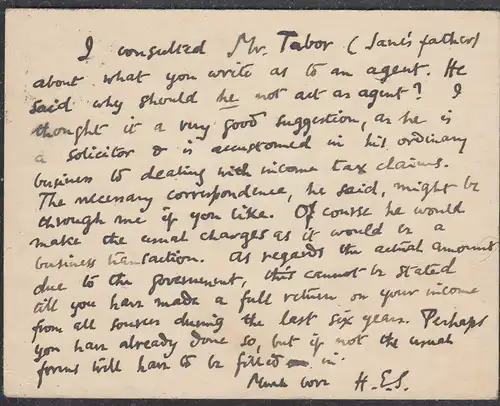 I consulted Mr. Tabor (Jane's father)
about what you write as to an agent. He
said why should he not act as agent? I
thought it a very good suggestion, as he is
a solicitor & is accustomed in his ordinary
business to dealing with income tax claims.
The necessary correspondence, he said, might be
through me if you like. Of course he would
make the usual charges as it would be a
business transaction. As regards the actual amount
due to the government, this cannot be stated
till you have made a full return on your income
from all sources during the last six years. Perhaps
you have already done so, but if not the usual
forms will have to be filled in.
Much love H.E.S.